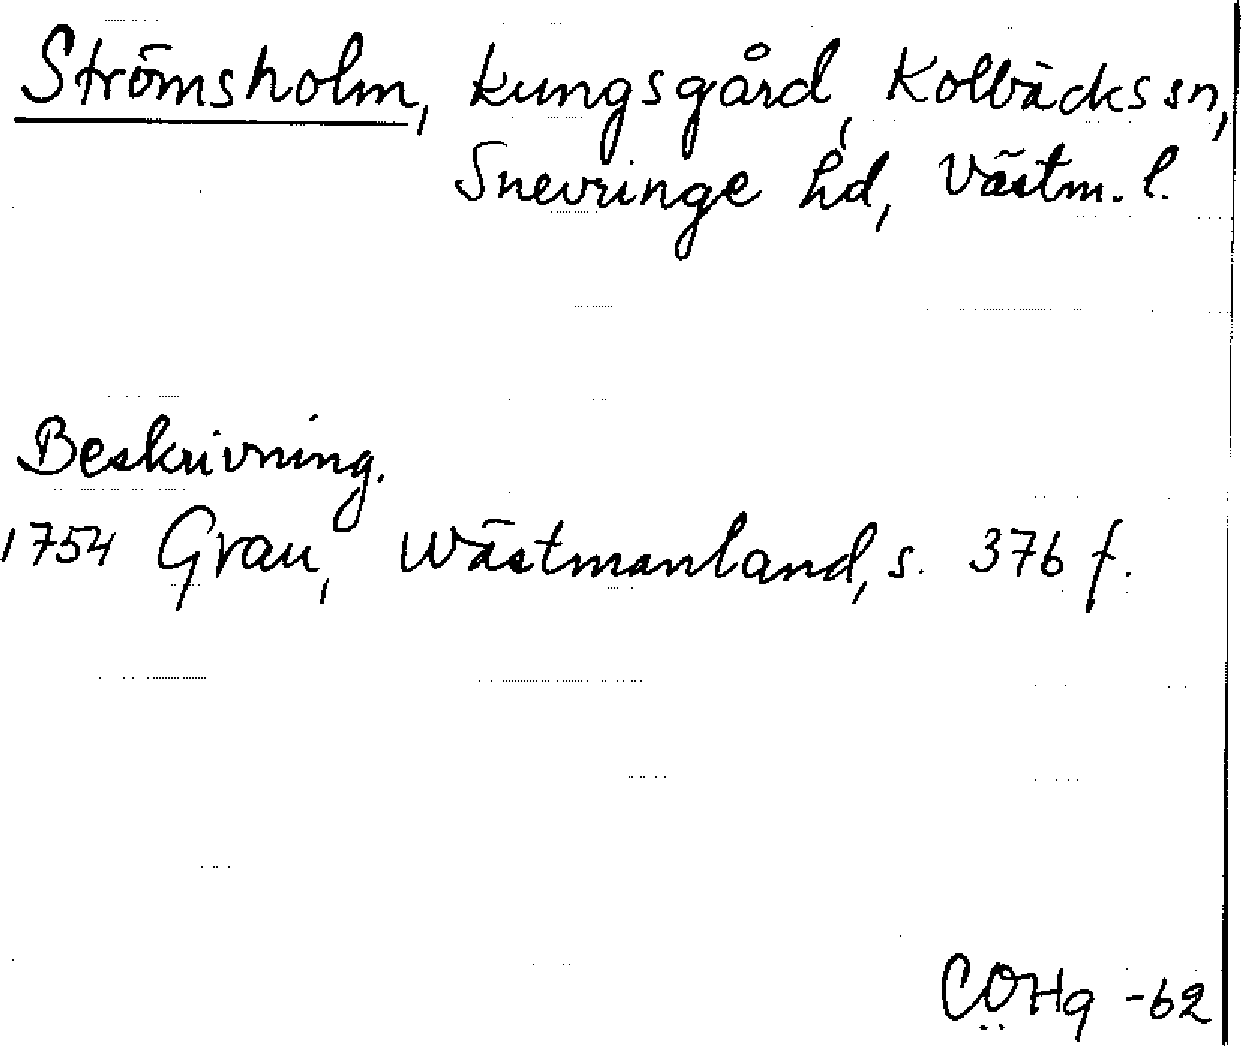 Strömsholm, kungsgård, Kolbäcks sn,
Snevringe hd, Västm. l.
Beskrivning.
1754 Grau, Wästmanland, s. 376 f.
COHg -62